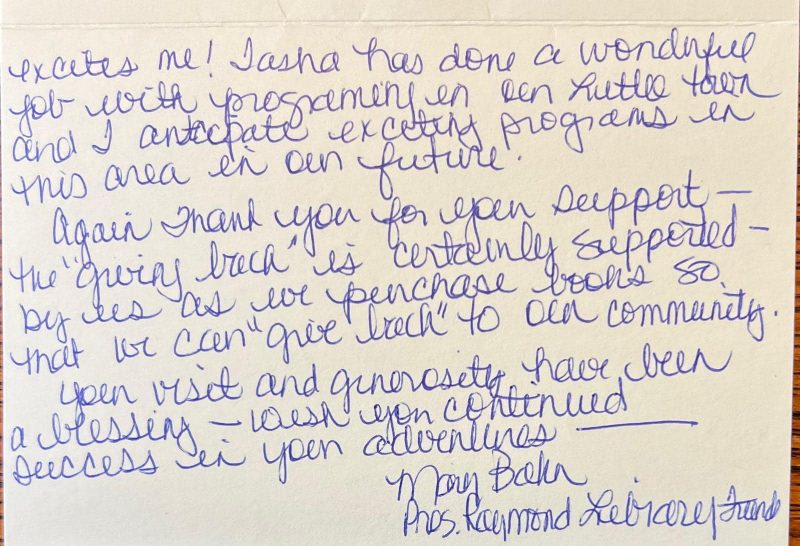 excites me! Tasha has done a wonderful
job with programing in our little town
and I anticipate exciting programs in
this area in our future.
Again Thank you for your support —
the "giving back" is certainly supported —
by us as we purchase books so
that we can "give back" to our community.
Your visit and generosity have been
a blessing — wish you continued
success in your adventures
Mary Bahn
Pres. Raymond Library Friends